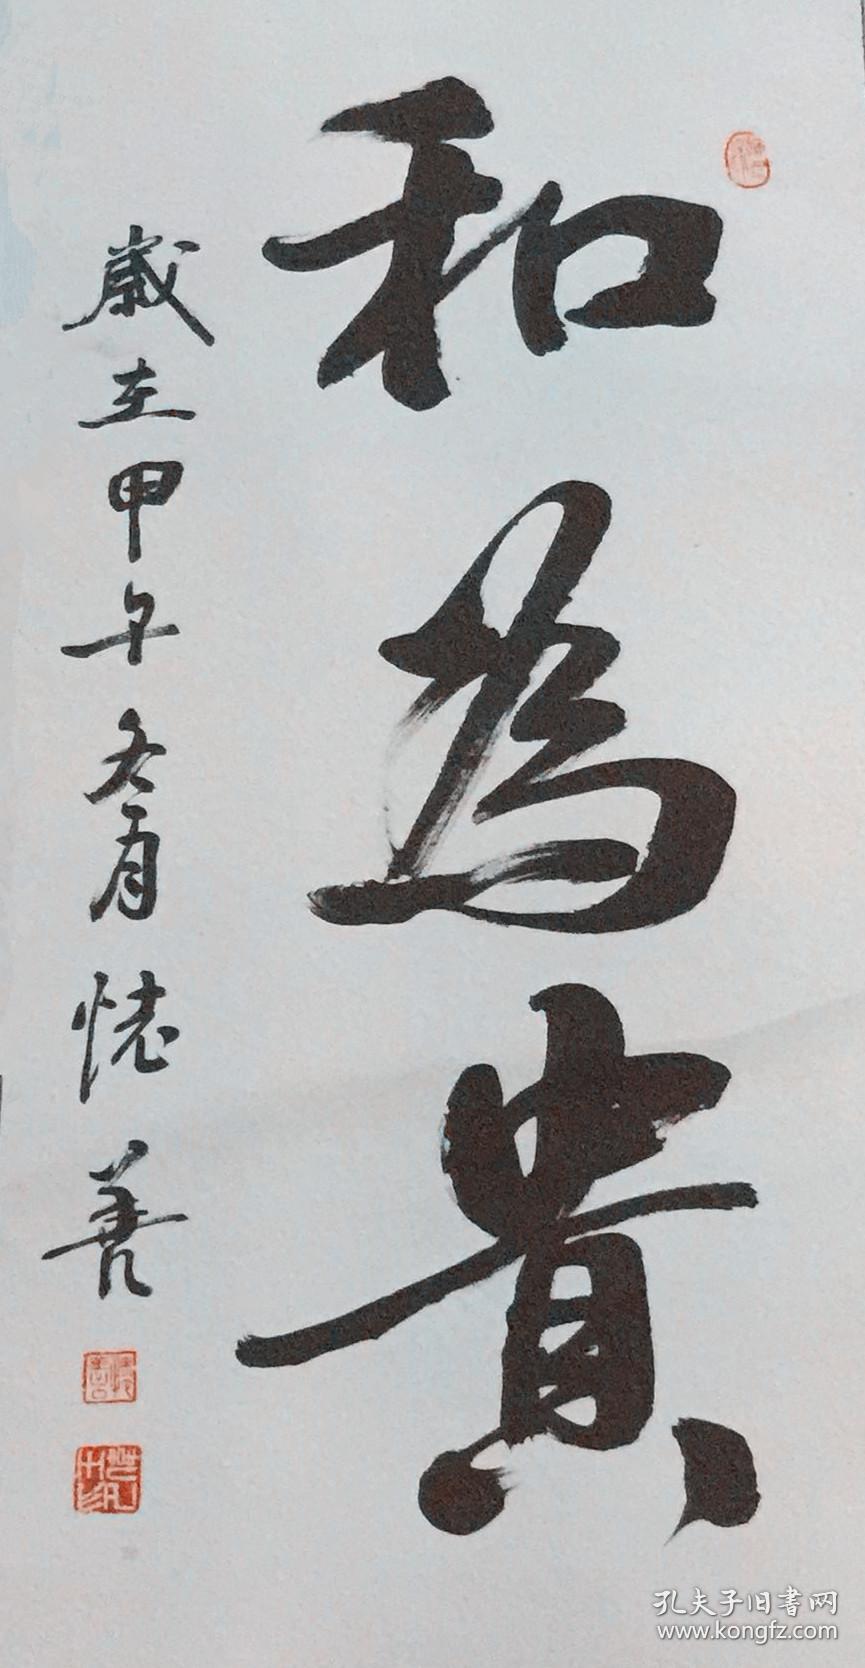 和為貴
歲在甲午冬月懐善
孔夫子旧書网
www.kongfz.com